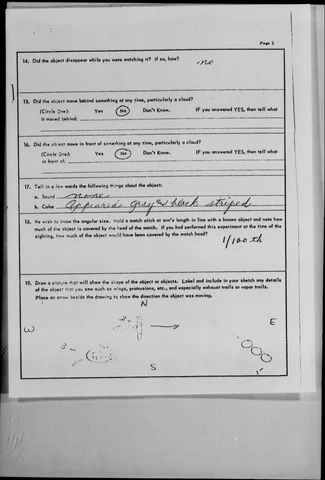 Page 3
14. Did the object disappear while you were watching it? If so, how?
-no
15. Did the object move behind something at any time, particularly a cloud?
(Circle One): Yes No Don't Know. IF you answered YES, then tell what
it moved behind:
16. Did the object move in front of something at any time, particularly a cloud?
(Circle One): Yes No Don't Know. IF you answered YES, then tell what
in front of:
17. Tell in a few words the following things about the object:
a. Sound none
b. Color appeared gray & black striped
18. We wish to know the angular size. Hold a match stick at arm's length in line with a known object and note how
much of the object is covered by the head of the match. If you had performed this experiment at the time of the
sighting, how much of the object would have been covered by the match head?
1/100 th
19. Draw a picture that will show the shape of the object or objects. Label and include in your sketch any details
of the object that you saw such as wings, protrusions, etc., and especially exhaust trails or vapor trails.
Place an arrow beside the drawing to show the direction the object was moving.
N
2-
W
E
3-
S